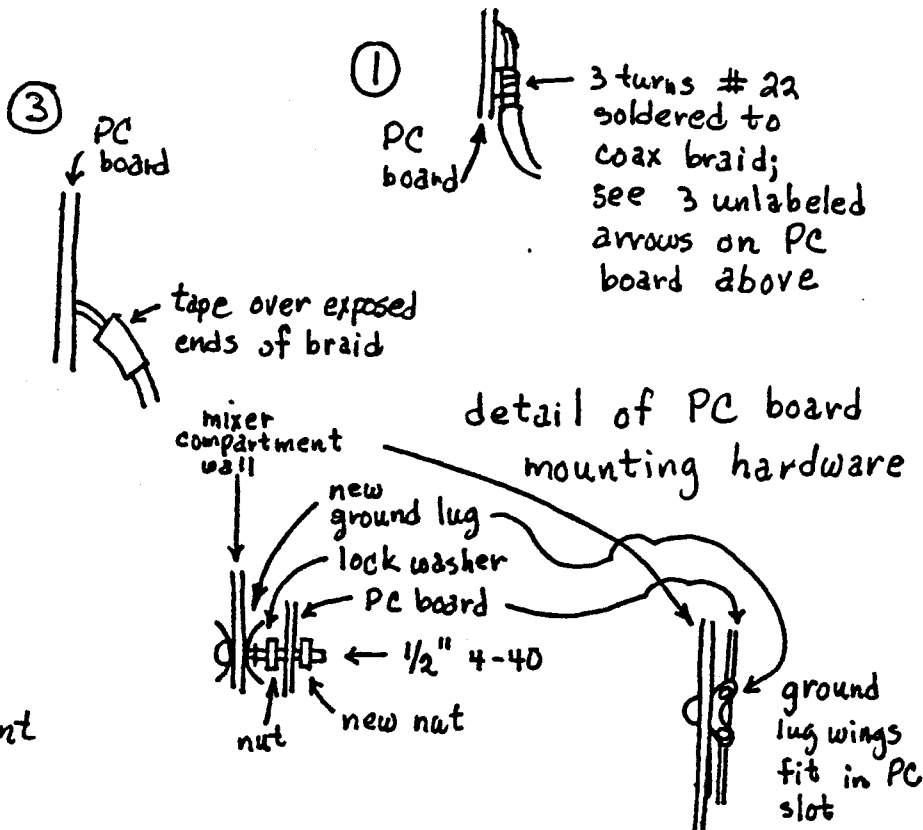 ①
3 turns # 22
soldered to
coax braid;
see 3 unlabeled
arrows on PC
board above
PC
board
③
PC
board
tape over exposed
ends of braid
detail of PC board
mounting hardware
mixer
compartment
wall
new
ground lug
lock washer
PC board
1/2" 4-40
new nut
nut
ground
lug wings
fit in PC
slot